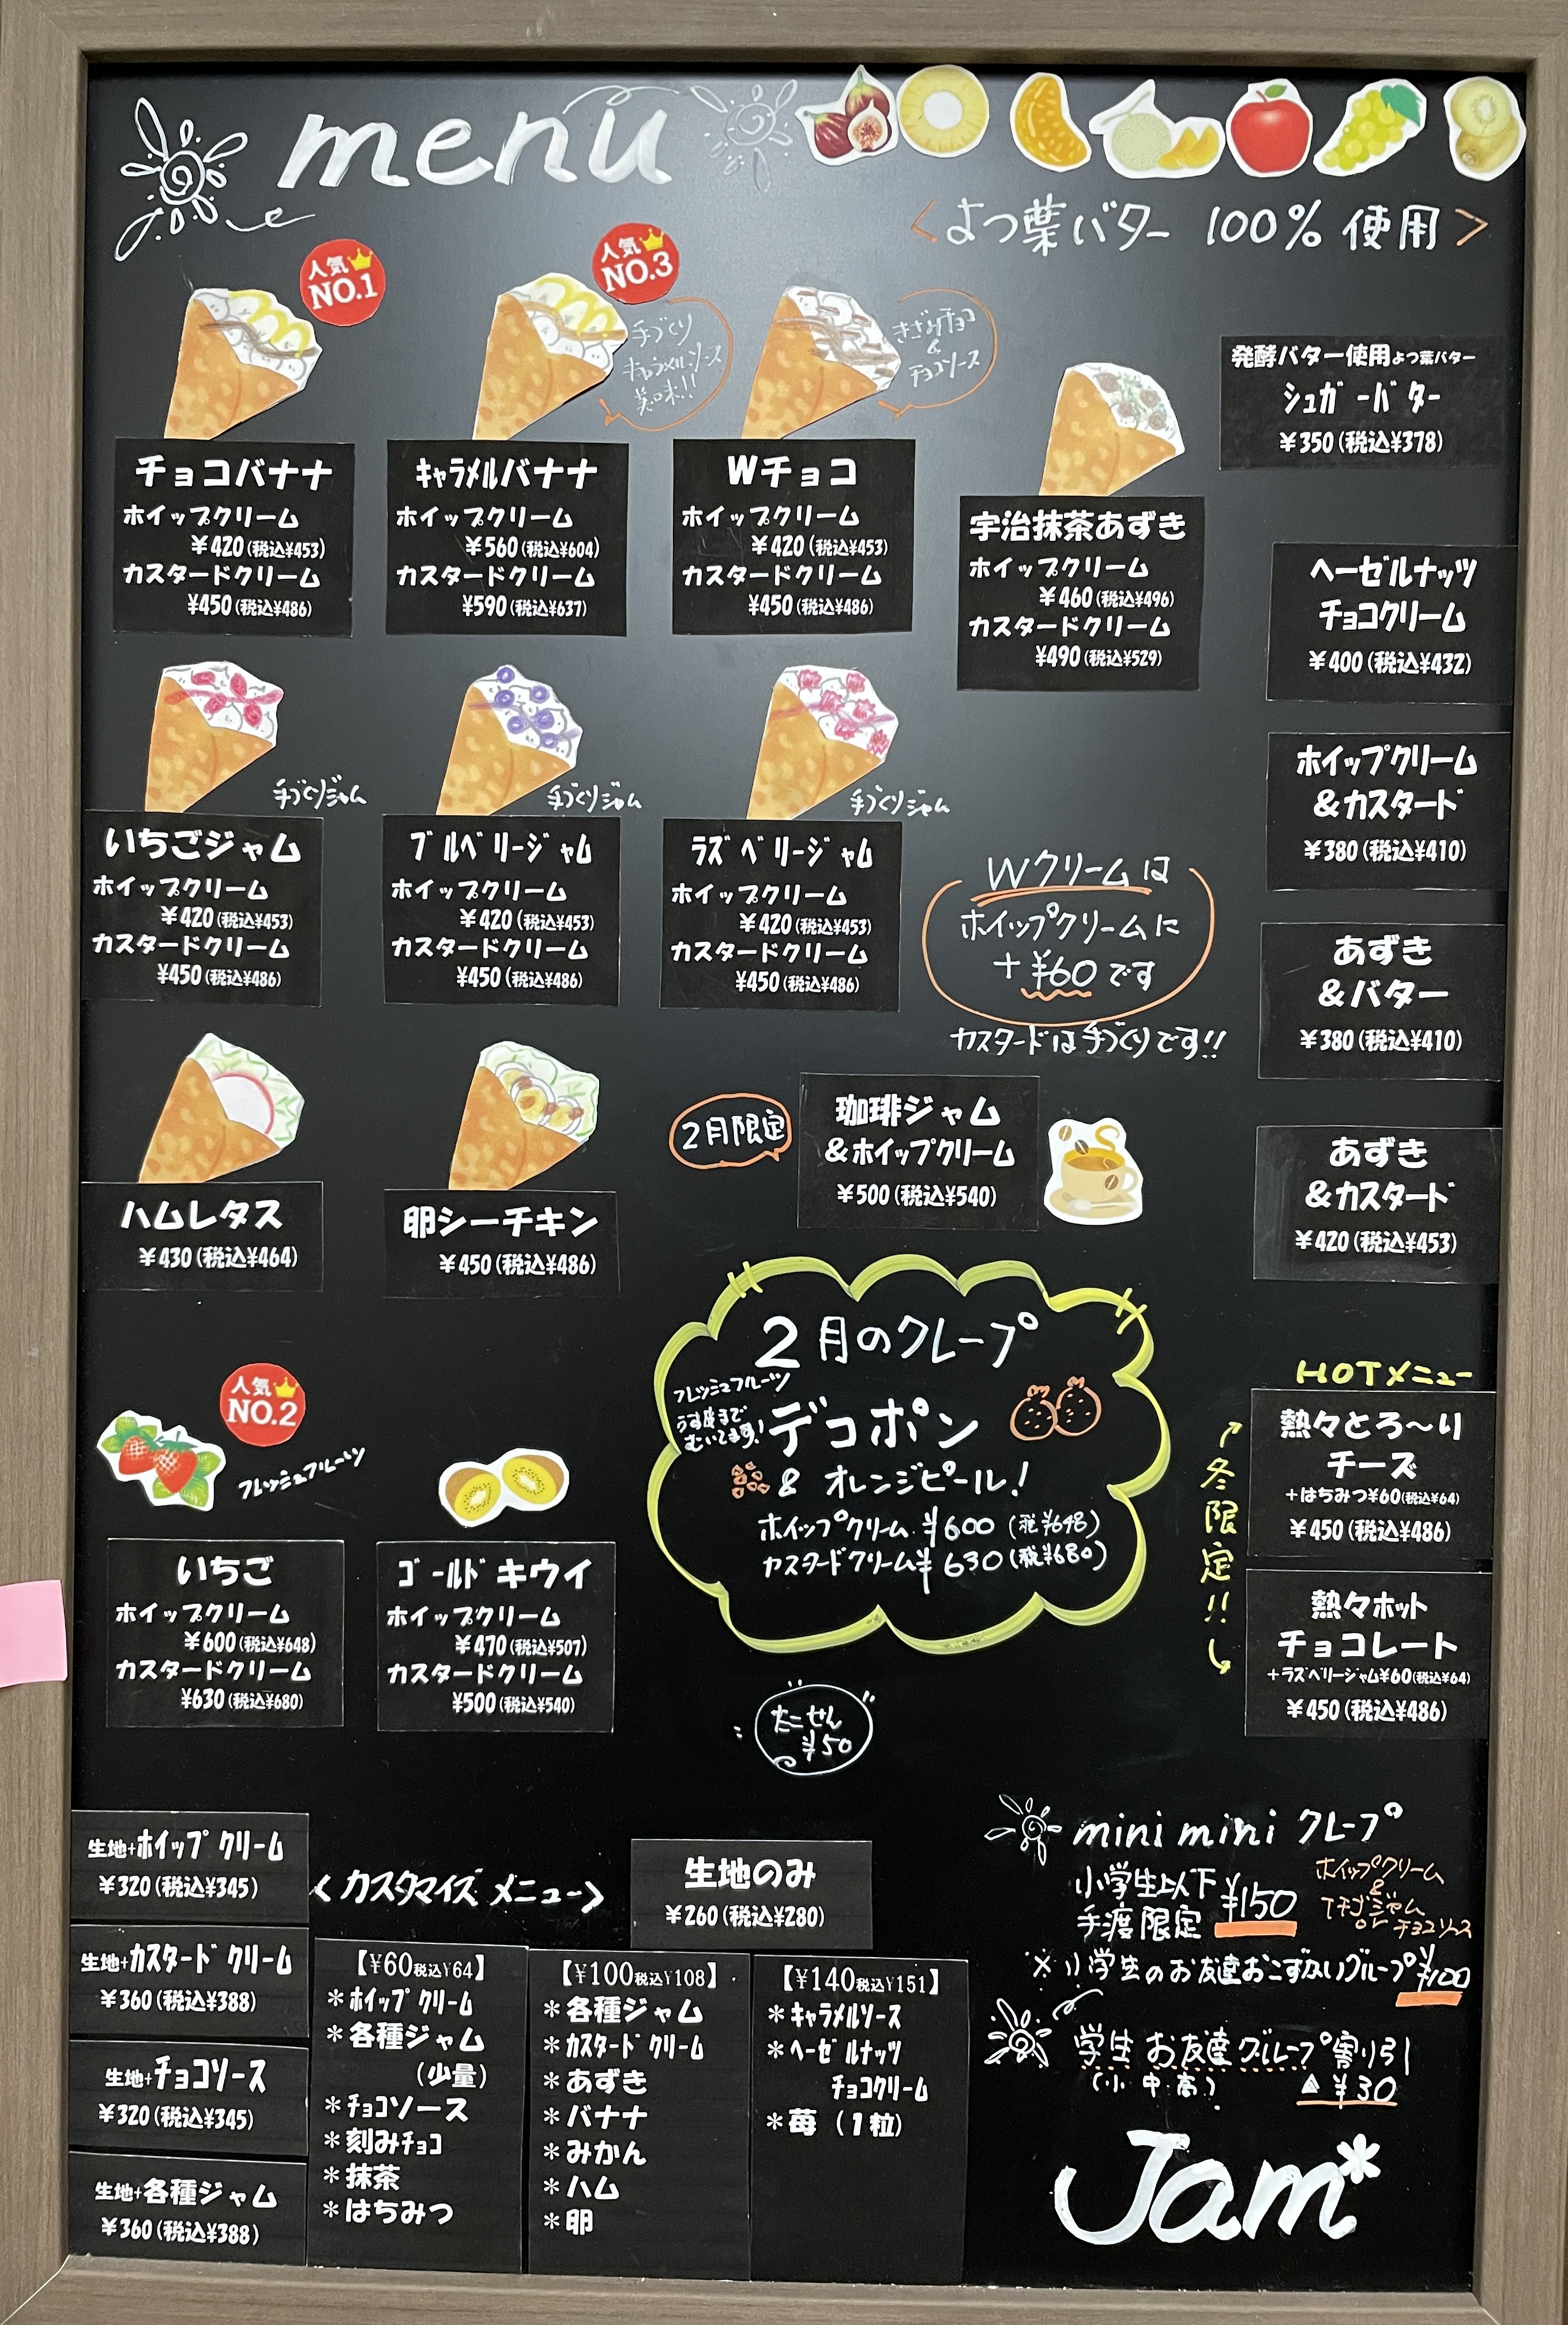 menu
<よつ葉バター 100% 使用>
人気
NO.1
チョコバナナ
ホイップクリーム
¥420(税込¥453)
カスタードクリーム
¥450(税込¥486)
人気
NO.3
手づくり
キャラメルソース
美味!!
キャラメルバナナ
ホイップクリーム
¥560(税込¥604)
カスタードクリーム
¥590(税込¥637)
きざみチョコ
&
チョコソース
Wチョコ
ホイップクリーム
¥420(税込¥453)
カスタードクリーム
¥450(税込¥486)
宇治抹茶あずき
ホイップクリーム
¥460(税込¥496)
カスタードクリーム
¥490(税込¥529)
発酵バター使用よつ葉バター
シュガーバター
¥350(税込¥378)
ヘーゼルナッツ
チョコクリーム
¥400(税込¥432)
ホイップクリーム
&カスタード
¥380(税込¥410)
あずき
&バター
¥380(税込¥410)
あずき
&カスタード
¥420(税込¥453)
手づくりジャム
いちごジャム
ホイップクリーム
¥420(税込¥453)
カスタードクリーム
¥450(税込¥486)
手づくりジャム
ブルベリージャム
ホイップクリーム
¥420(税込¥453)
カスタードクリーム
¥450(税込¥486)
手づくりジャム
ラズベリージャム
ホイップクリーム
¥420(税込¥453)
カスタードクリーム
¥450(税込¥486)
Wクリームは
ホイップクリームに
+¥60です
カスタードは手づくりです!!
ハムレタス
¥430(税込¥464)
卵シーチキン
¥450(税込¥486)
2月限定
珈琲ジャム
&ホイップクリーム
¥500(税込¥540)
2月のクレープ
フレッシュフルーツ
うす皮まで
むいてます!
デコポン
& オレンジピール!
ホイップクリーム ¥600(税¥648)
カスタードクリーム¥630(税¥680)
人気
NO.2
フレッシュフルーツ
いちご
ホイップクリーム
¥600(税込¥648)
カスタードクリーム
¥630(税込¥680)
ゴールドキウイ
ホイップクリーム
¥470(税込¥507)
カスタードクリーム
¥500(税込¥540)
HOTメニュー
冬限定!!
熱々とろ～り
チーズ
+はちみつ¥60(税込¥64)
¥450(税込¥486)
熱々ホット
チョコレート
+ラズベリージャム¥60(税込¥64)
¥450(税込¥486)
たこせん
¥50
生地+ホイップクリーム
¥320(税込¥345)
生地+カスタードクリーム
¥360(税込¥388)
生地+チョコソース
¥320(税込¥345)
生地+各種ジャム
¥360(税込¥388)
<カスタマイズメニュー>
生地のみ
¥260(税込¥280)
【¥60税込¥64】
*ホイップクリーム
*各種ジャム
(少量)
*チョコソース
*刻みチョコ
*抹茶
*はちみつ
【¥100税込¥108】
*各種ジャム
*カスタードクリーム
*あずき
*バナナ
*みかん
*ハム
*卵
【¥140税込¥151】
*キャラメルソース
*ヘーゼルナッツ
チョコクリーム
*苺(1粒)
mini mini クレープ
小学生以下
手渡限定
¥150
ホイップクリーム
&
イチゴジャム
or チョコソース
※小学生のお友達おこずかいグループ¥100
学生 お友達グループ割り引
(小中高)
▲¥30
Jam*